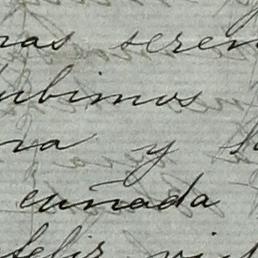 ras seren
ubimos
na y s
cuñada
feliz vi